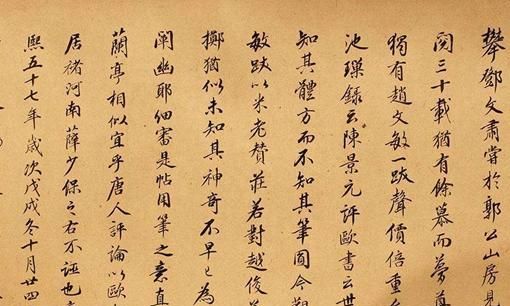 攀鄧文肅嘗於郭公山房見
閱三十載猶有餘慕而夢
獨有趙文敏一跋聲價倍重
池璅錄云陳景元評歐書云世
知其體方而不知其筆圓今
敏跋以米老贊莊若對越俊
擲猶似未知其神奇不早已為
闡幽耶細審是帖用筆之意真
蘭亭相似宜乎唐人評論以歐
居褚河南薛少保之右不誣也
熙五十七年歲次戊戌冬十月廿四